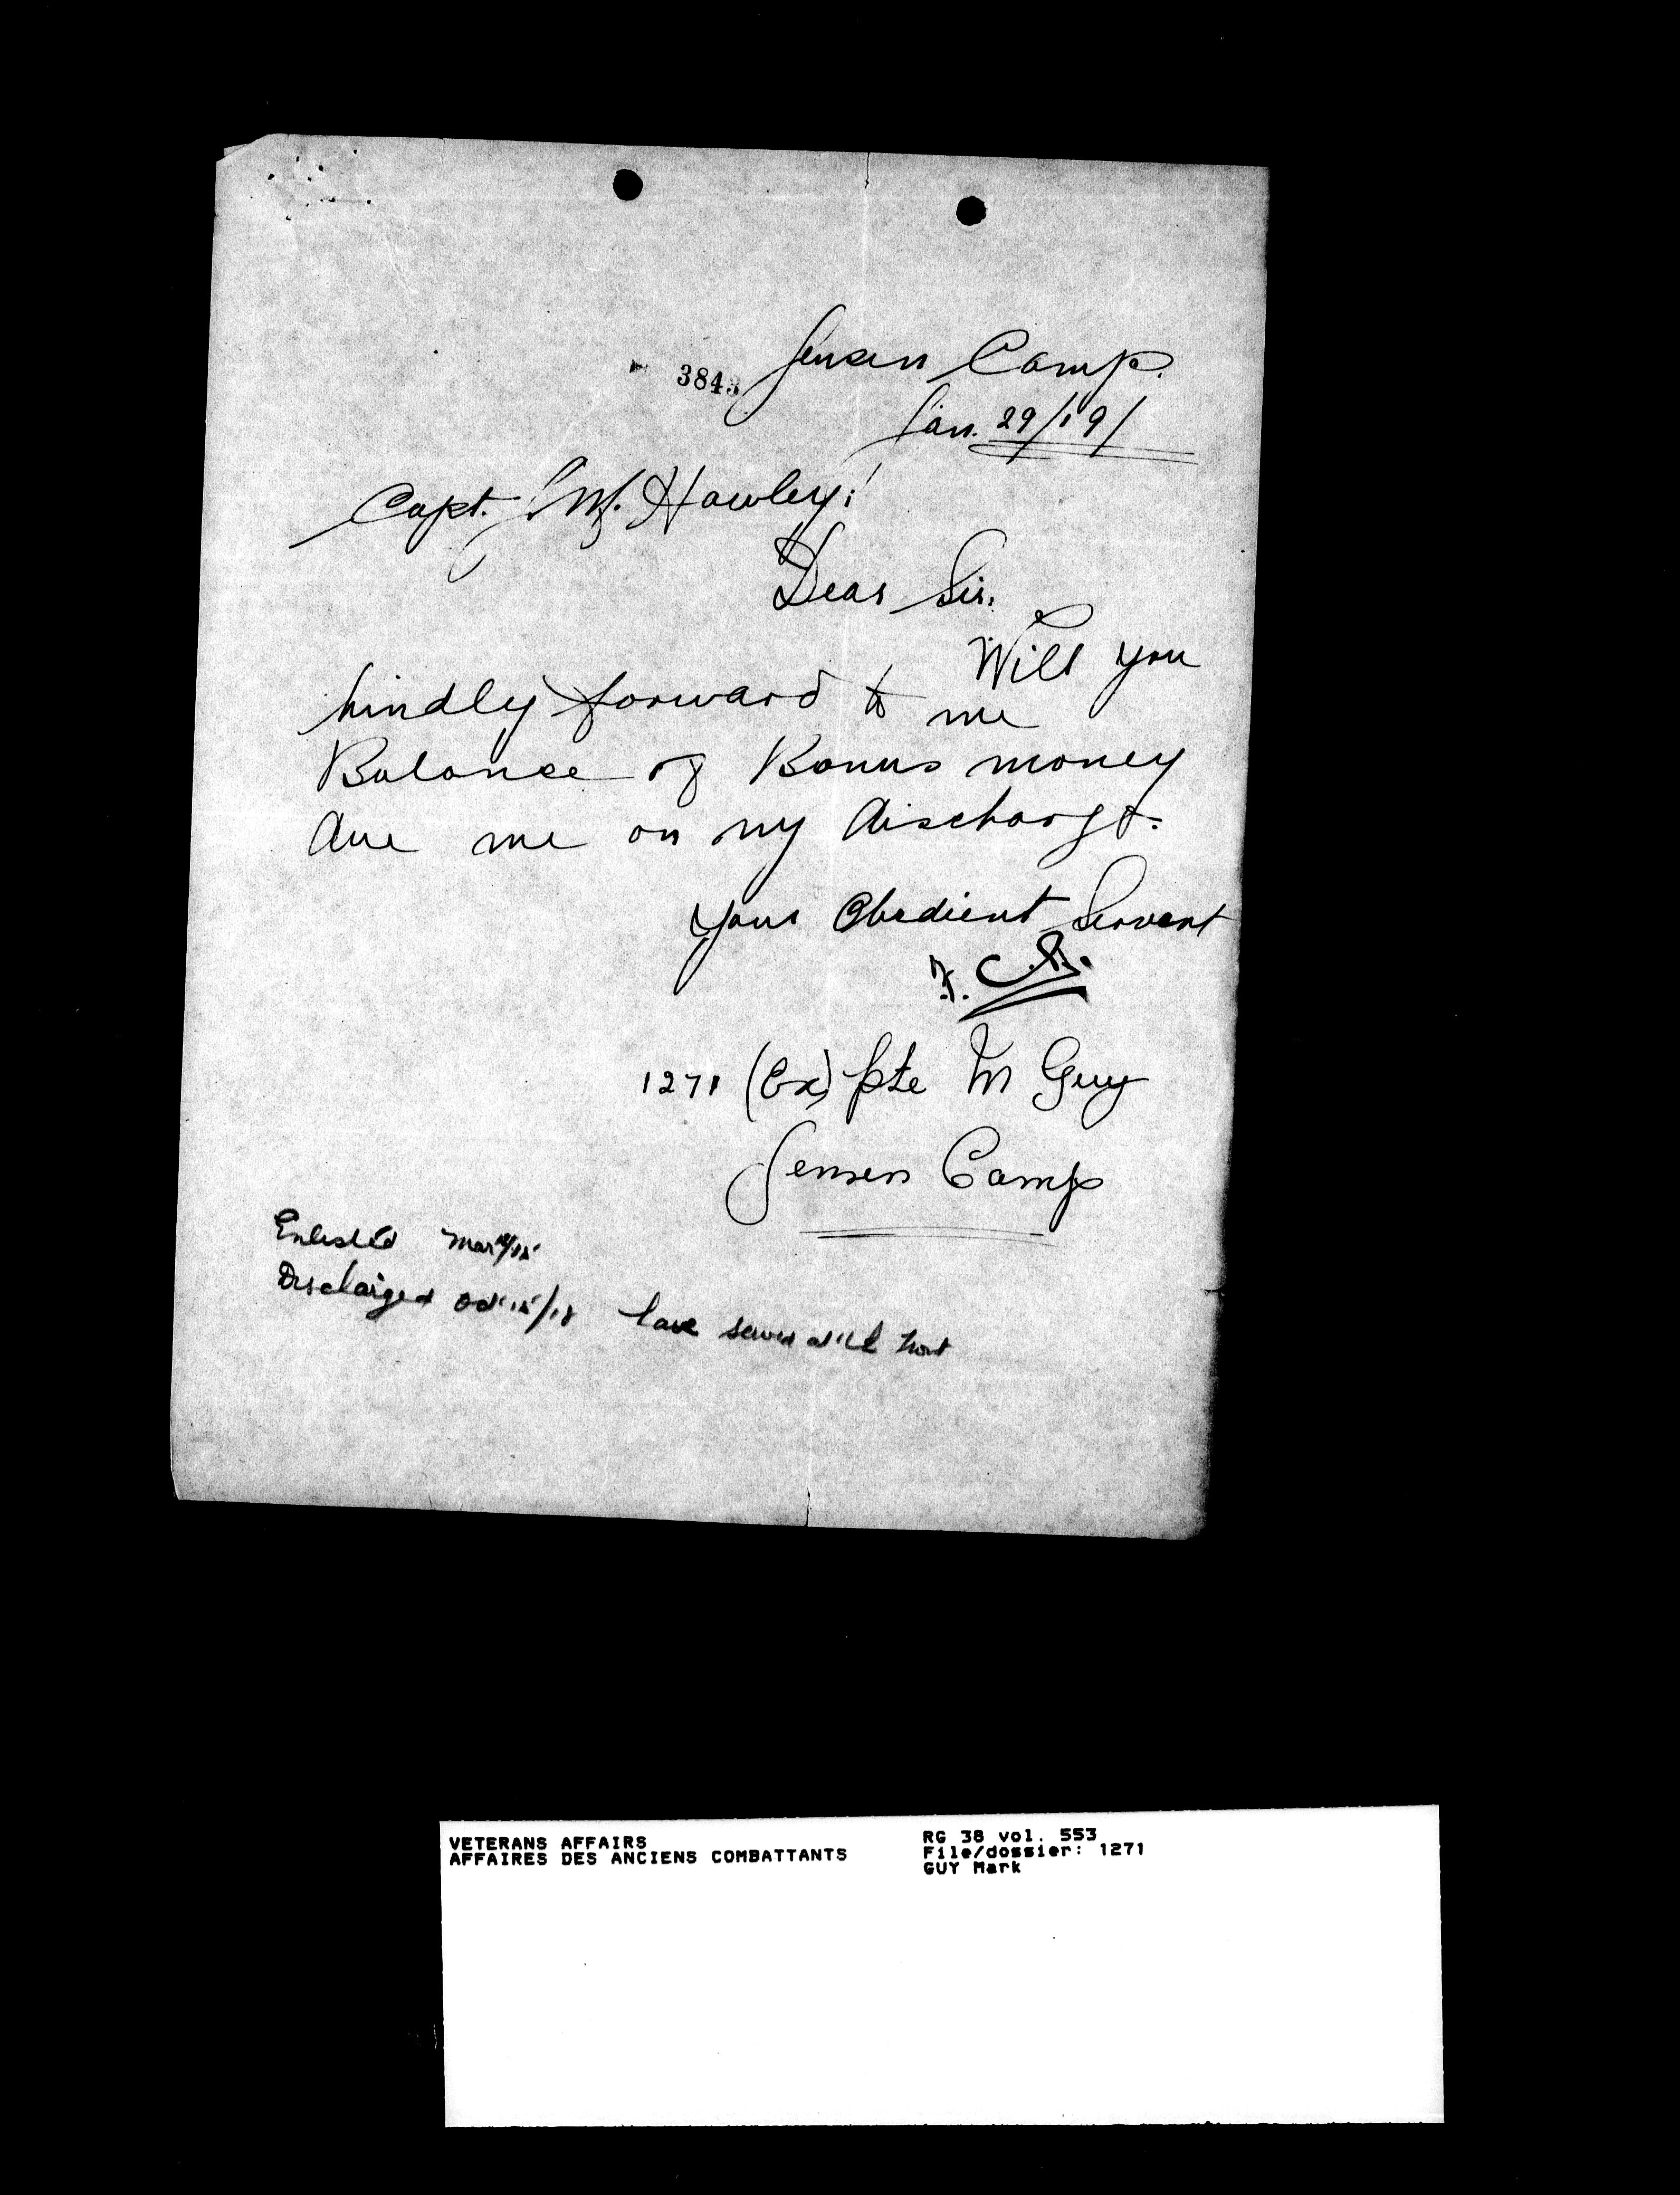 Jensen Camp.
3843
Jan. 29/19/
Capt. J. M. Howley:
Dear Sir.
Will you
kindly forward to me
Balance of Bonus money
due me on my discharge.
your Obedient Servant
1271 (Ex) Pte M Guy
Jensen Camp
Enlisted Mar
Discharged Oct 15/18 have served at the front
VETERANS AFFAIRS
AFFAIRES DES ANCIENS COMBATTANTS
RG 38 vol. 553
File/dossier: 1271
GUY Mark